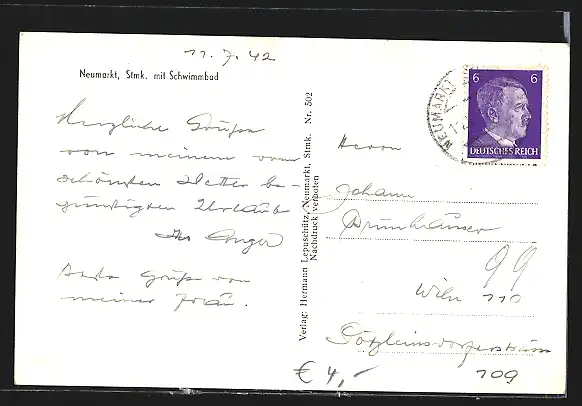 11.7.42
Neumarkt, Stmk. mit Schwimmbad
Herzliche Grüße
von meinem vom
schönsten Wetter be-
günstigten Urlaub
Ihr Unger
Grüße von
meiner Frau.
Verlag: Hermann Lepuschütz, Neumarkt, Stmk. Nr. 502
Nachdruck verboten
NEUMARKT
6 6
DEUTSCHES REICH
Herrn
Johann
99
Wien 110
Pötzleinsdorferstrasse
109
€ 4,-